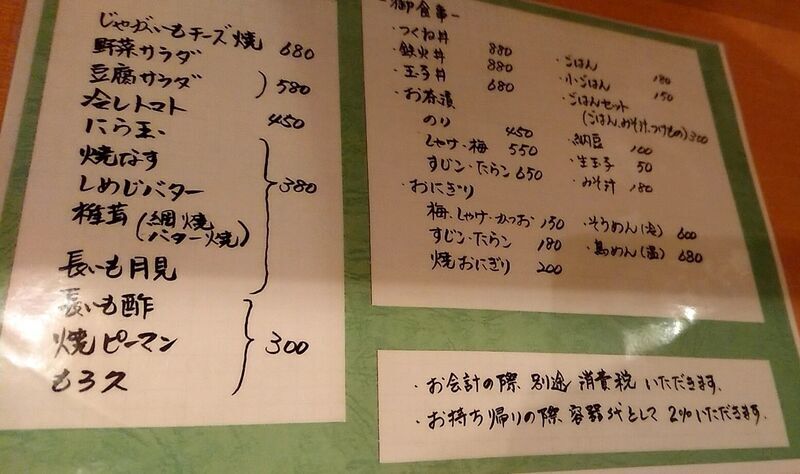 じゃがいもチーズ焼 680
野菜サラダ
豆腐サラダ 580
冷しトマト 450
にら玉
焼なす
しめじバター 380
椎茸(網焼
バター焼)
長いも月見
長いも酢
焼ピーマン 300
もろ久
-御食事-
・つくね丼 880
・鉄火丼 880
・玉子丼 680
・お茶漬
のり 450
しゃけ・梅 550
すじこ・たらこ 650
・おにぎり
梅、しゃけ・かつお 150
すじこ・たらこ 180
焼おにぎり 200
・ごはん 180
・小ごはん 150
・ごはんセット
(ごはん、みそ汁、つけもの) 300
・納豆 100
・生玉子 50
・みそ汁 180
・そうめん(冷) 600
・鳥めん(温) 680
・お会計の際 別途 消費税 いただきます.
・お持ち帰りの際 容器代として 2%いただきます.